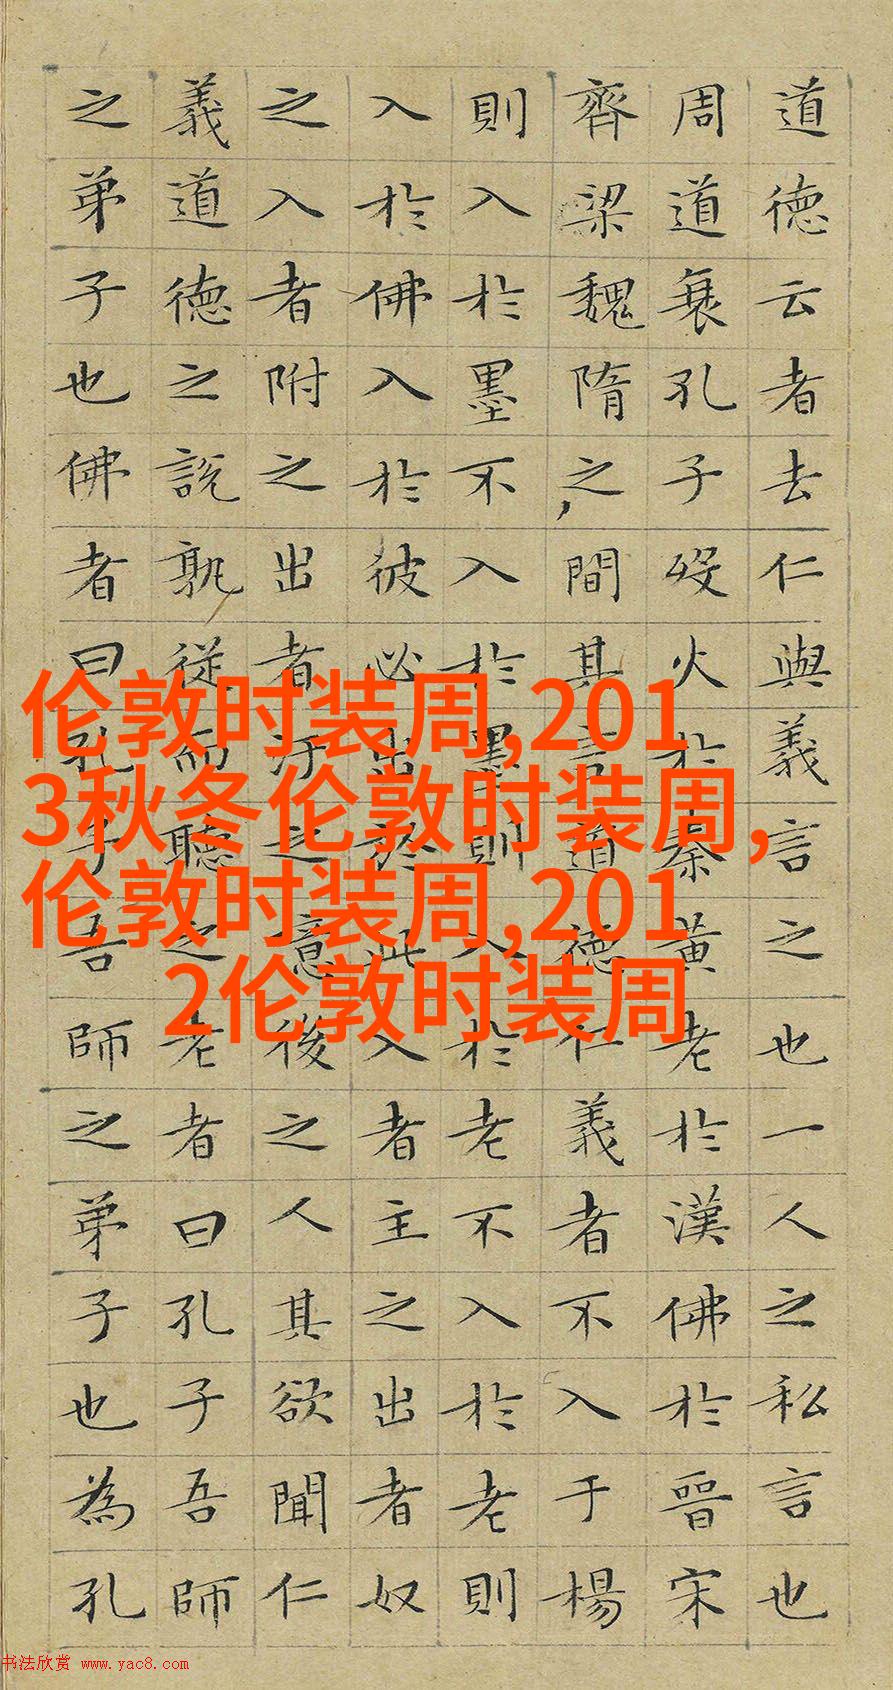 道德云者去仁與義言之也一人之私言也
周道衰孔子歿火於秦黃老於漢佛於晉宋
齊梁魏隋之間其言道德仁義者不入于楊
則入於墨不入於墨則入於老不入於老則
入於佛入於彼必出於此入者主之出者奴
之入者附之出者汙之意後之人其欲聞仁
義道德之說孰從而聽之老者曰孔子吾師
之弟子也佛者曰孔子吾師之弟子也為孔
伦敦时装周,201
3秋冬伦敦时装周,
伦敦时装周,201
2伦敦时装周
书法欣赏 www.yac8.com